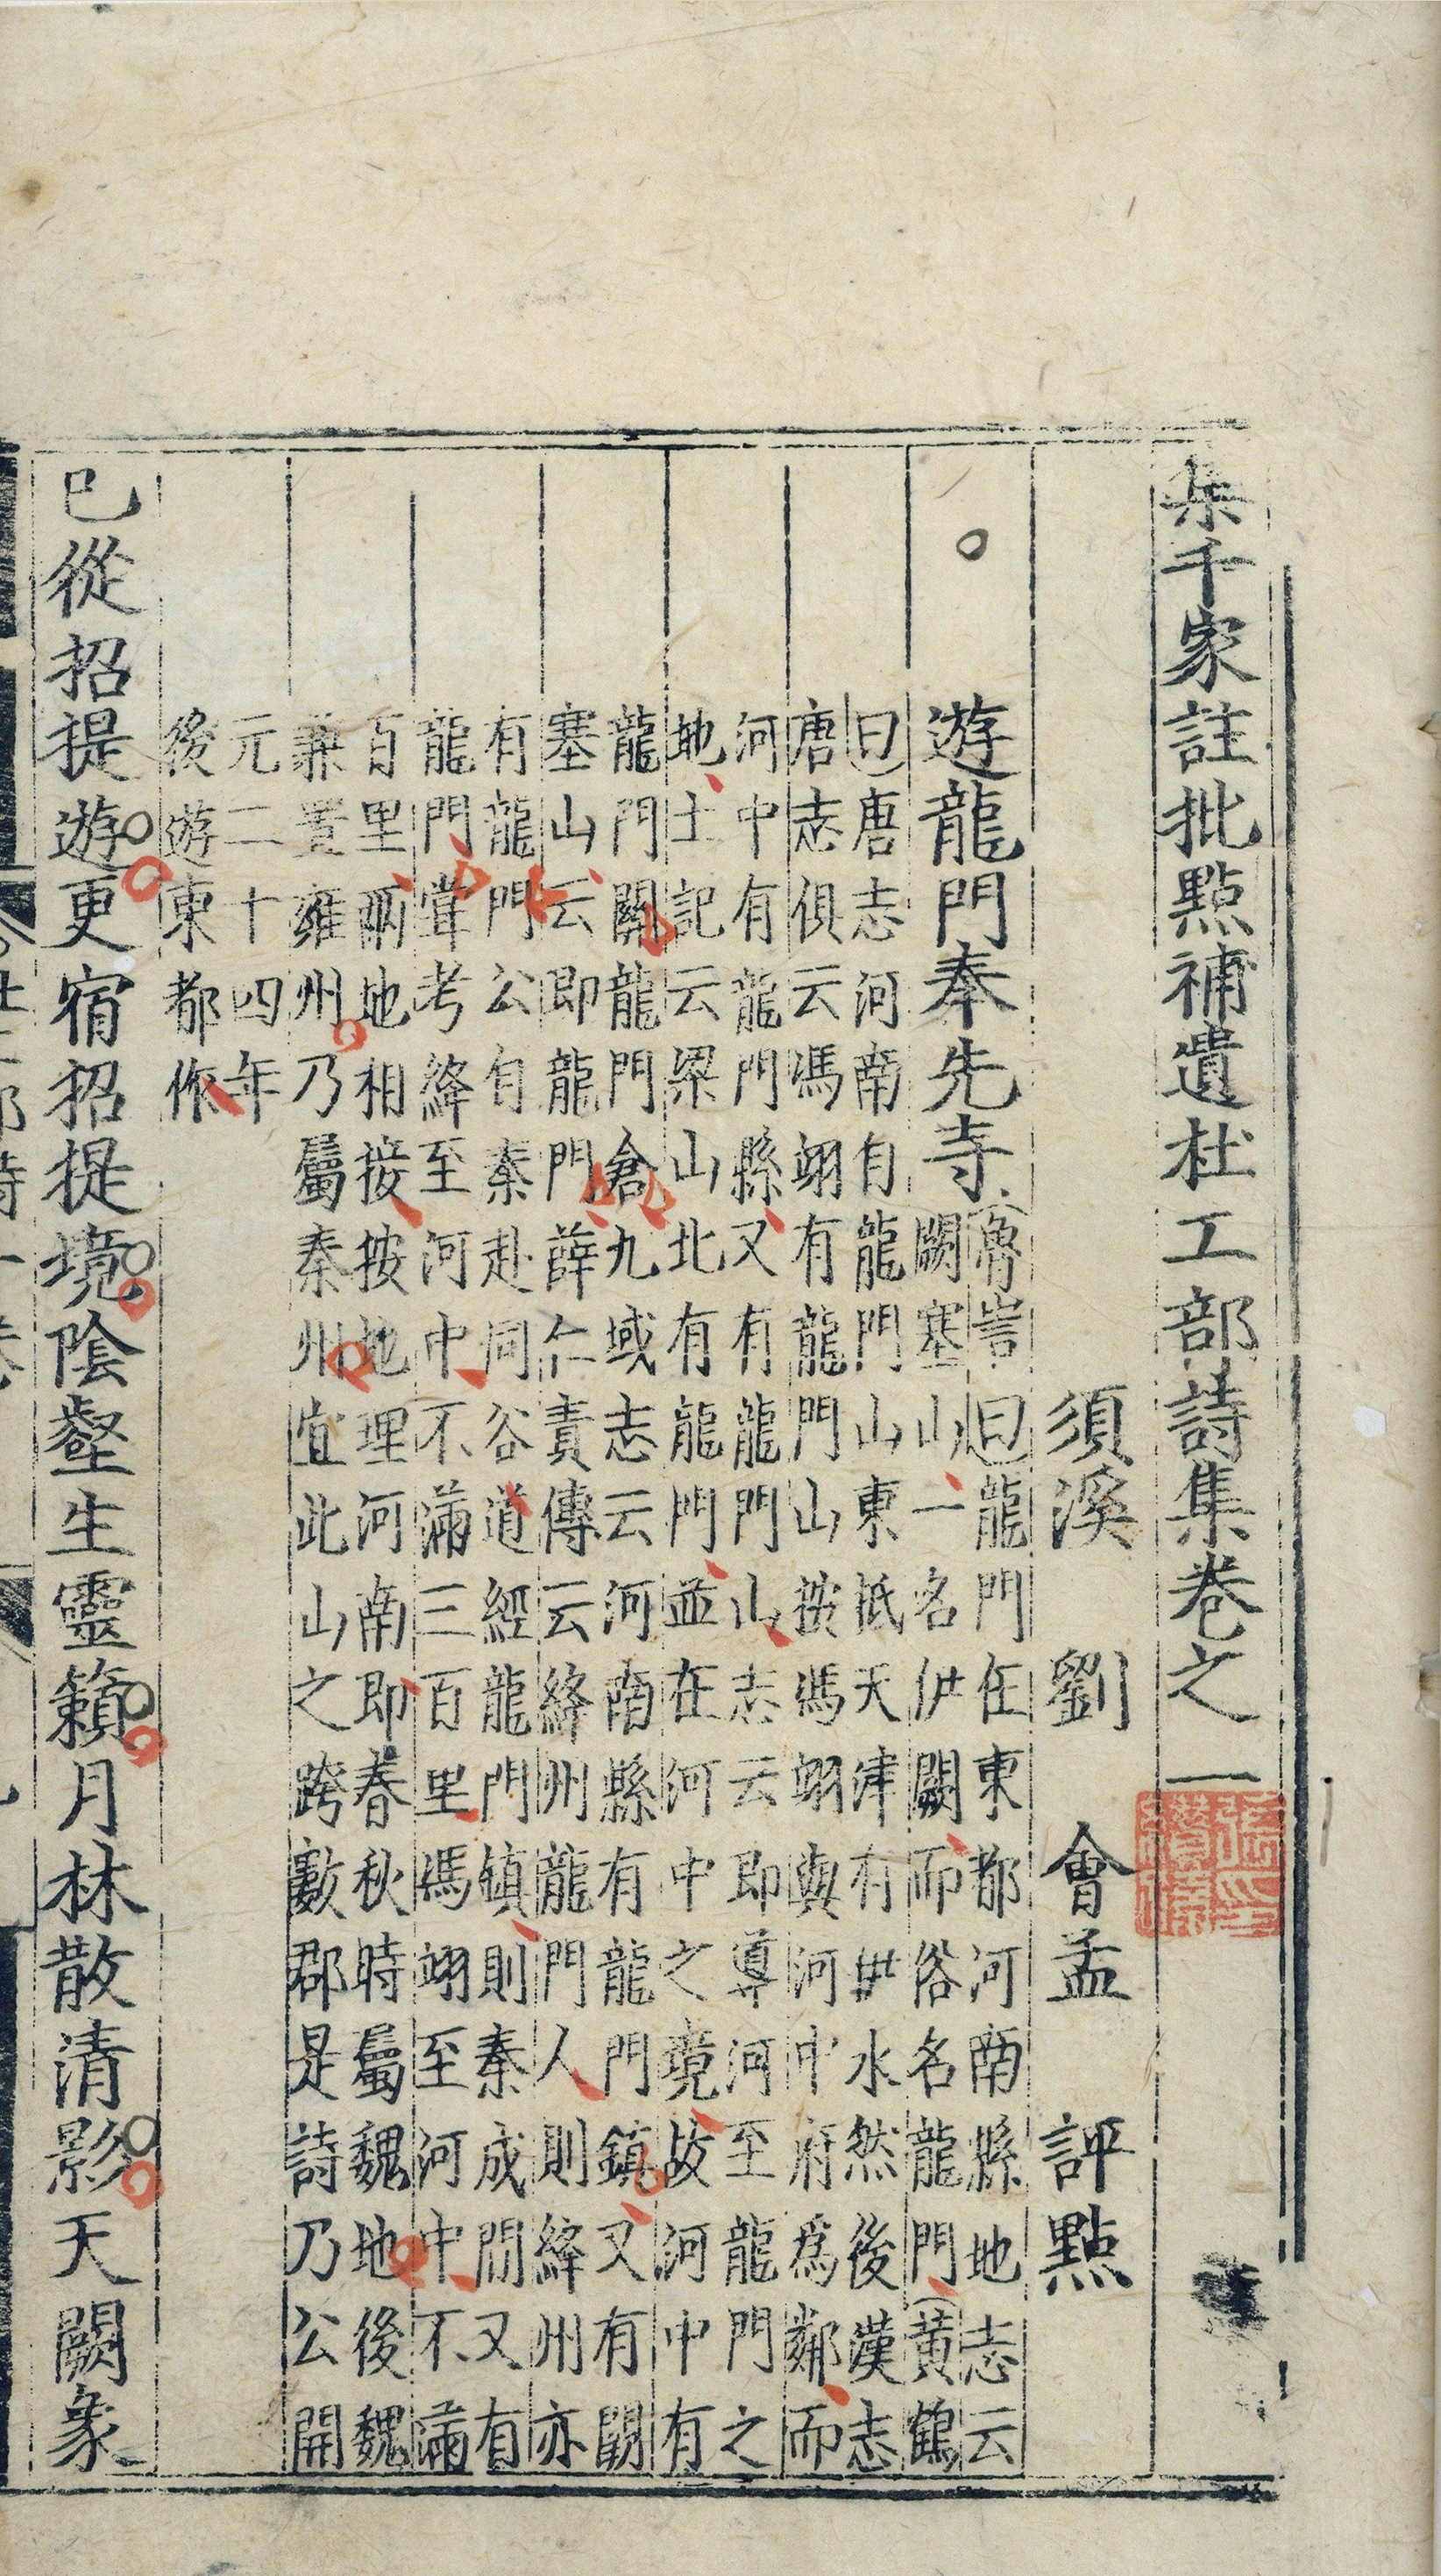 集千家註批點補遺杜工部詩集卷之一
須溪 劉 會孟 評點
遊龍門奉先寺
魯訔曰龍門在東都河南縣地志云
闕塞山一名伊闕而俗名龍門黃鶴
曰唐志河南自龍門山東抵天津有伊水然後漢志
唐志俱云馮翊有龍門山按馮翊與河中府為鄰而
河中有龍門縣又有龍門山志云即導河至龍門之
地土記云梁山北有龍門並在河中之境故河中有
龍門關龍門倉九域志云河南縣有龍門鎮又有闕
塞山云即龍門薛仁貴傳云絳州龍門人則絳州亦
有龍門公自秦赴同谷道經龍門鎮則秦成間又有
龍門嘗考絳至河中不滿三百里馮翊至河中不滿
百里兩地相接按地理河南即春秋時屬魏地後魏
兼置雍州乃屬秦州宜此山之跨數郡是詩乃公開
元二十四年
後遊東都作
已從招提遊更宿招提境陰壑生靈籟月林散清影天闕象